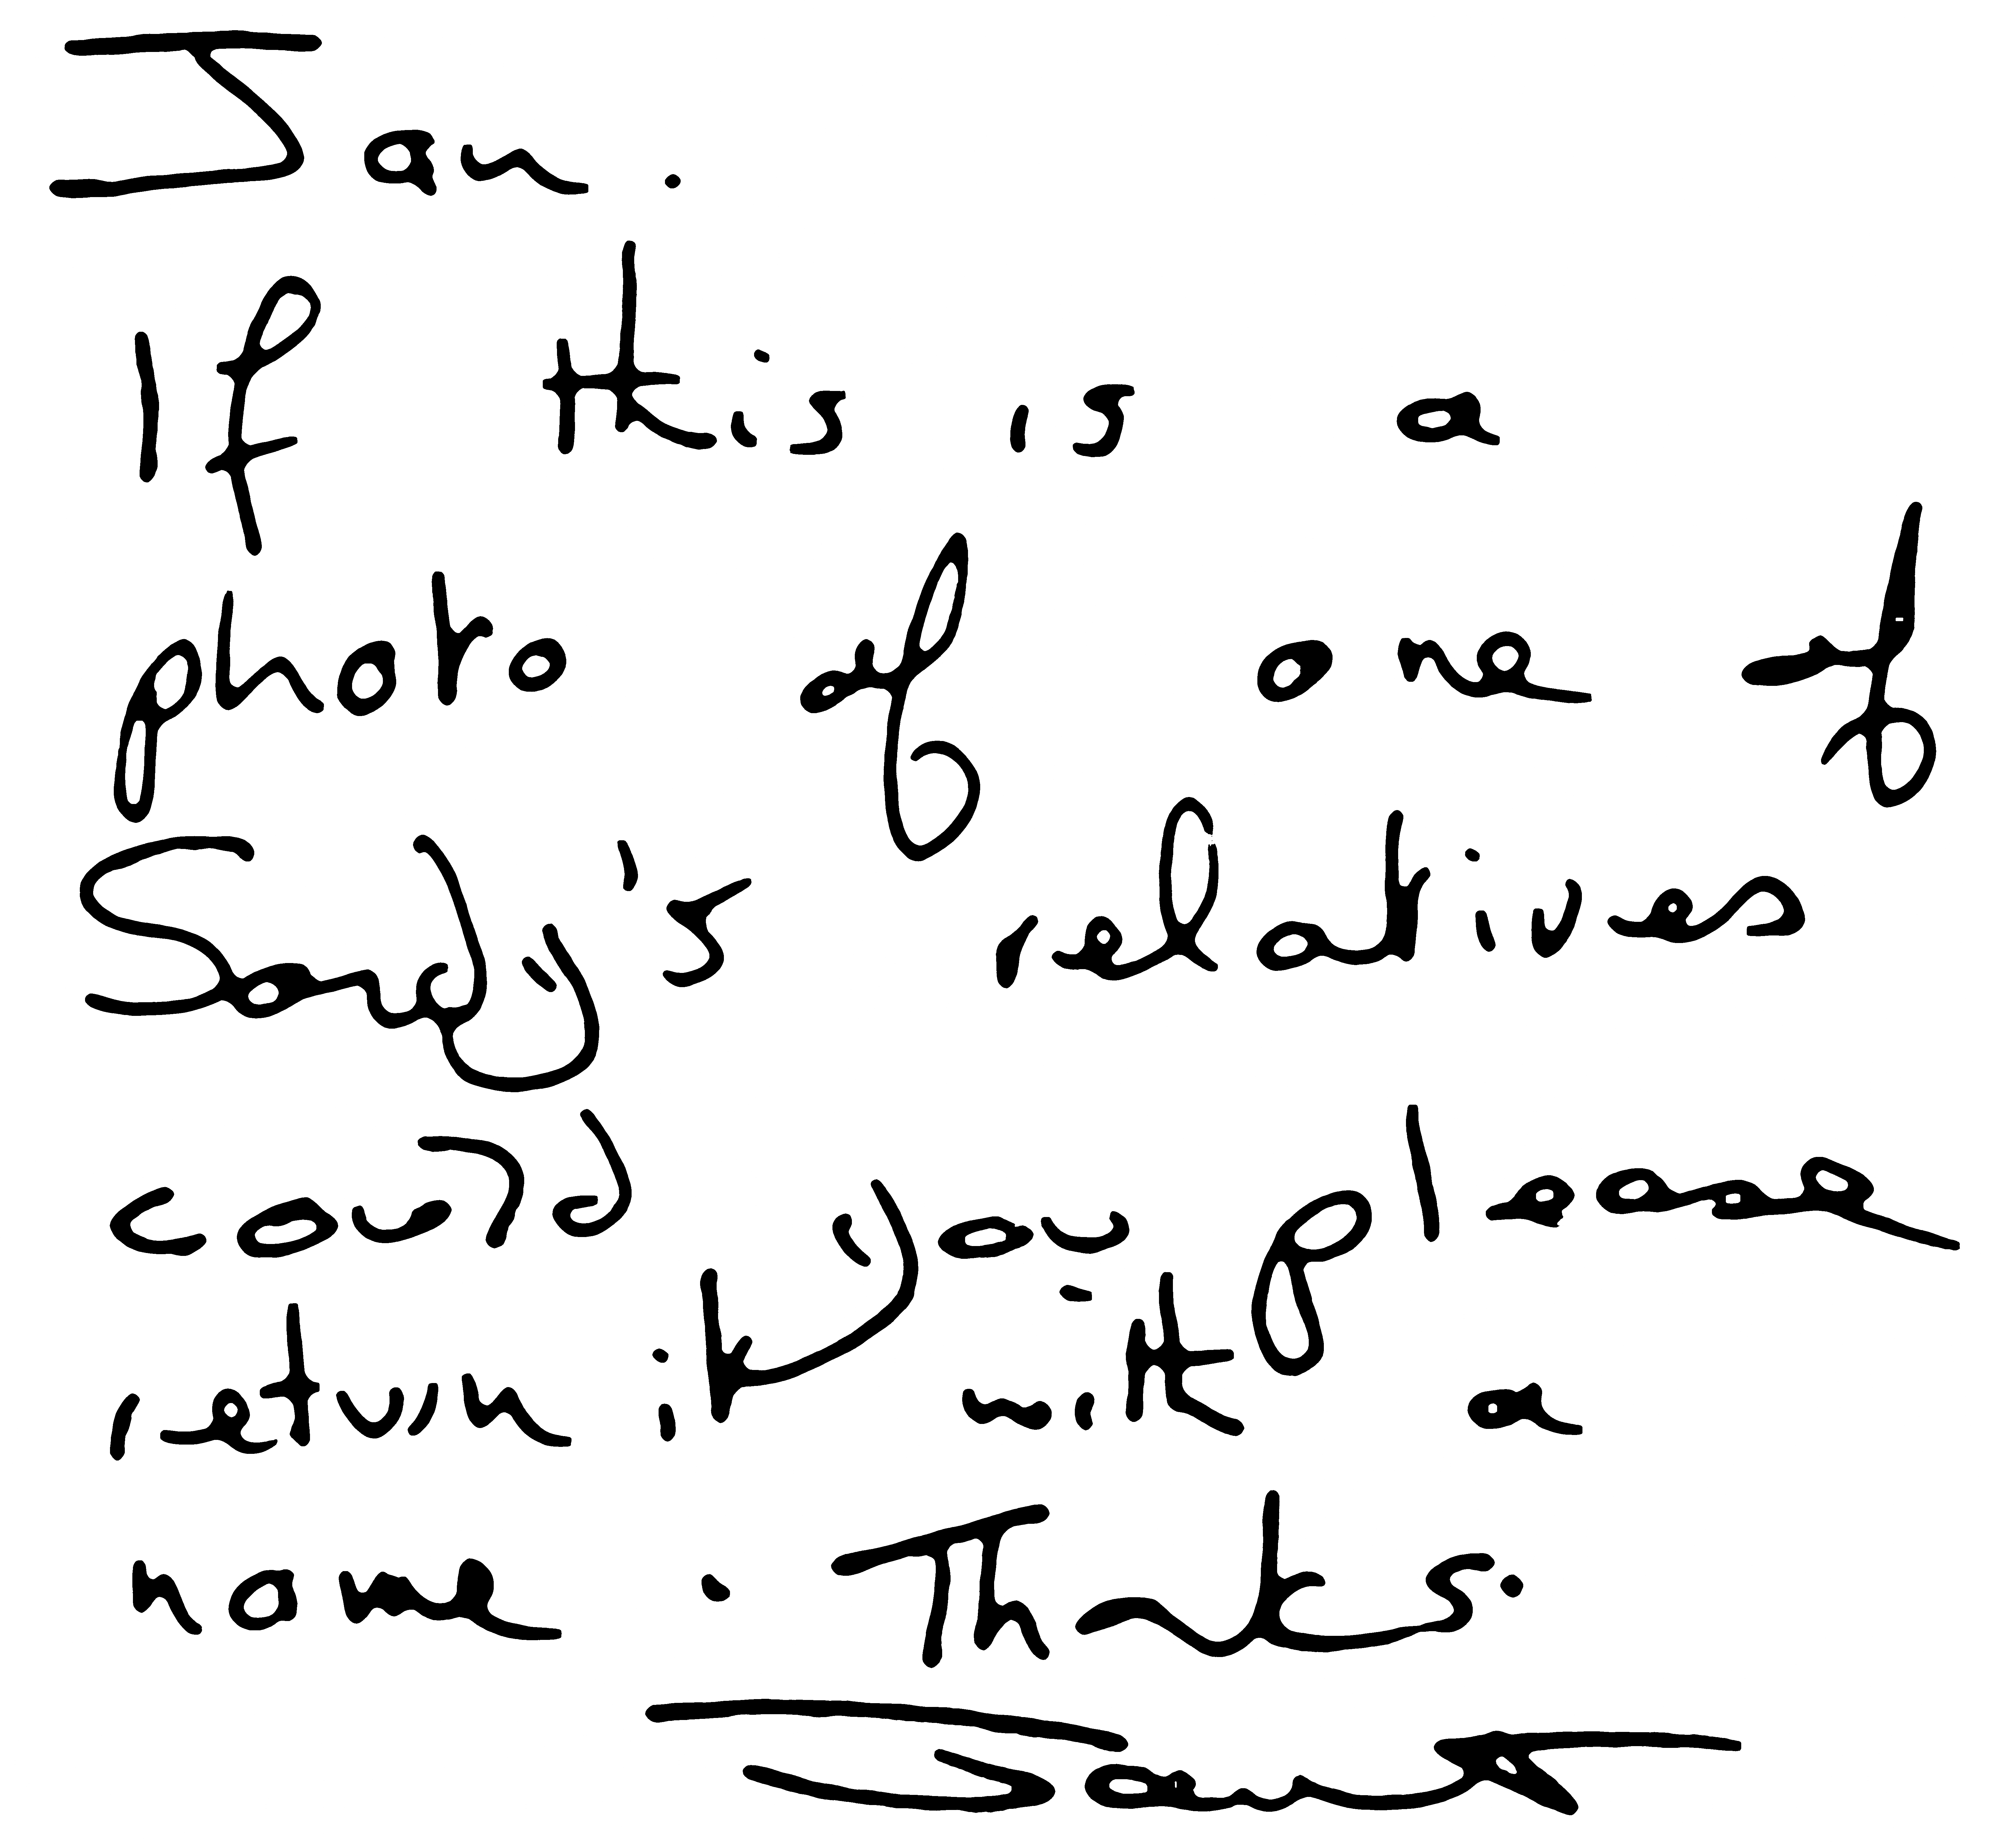 Jan.
If this is a
photo of one of
Sandy's relatives
could you please
return it with a
name. Thanks.
Janet